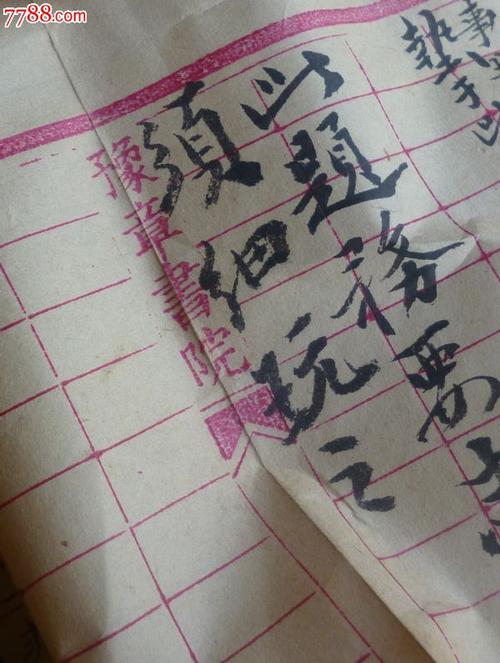 7788.com
此題務要
須細玩之
豫章書院